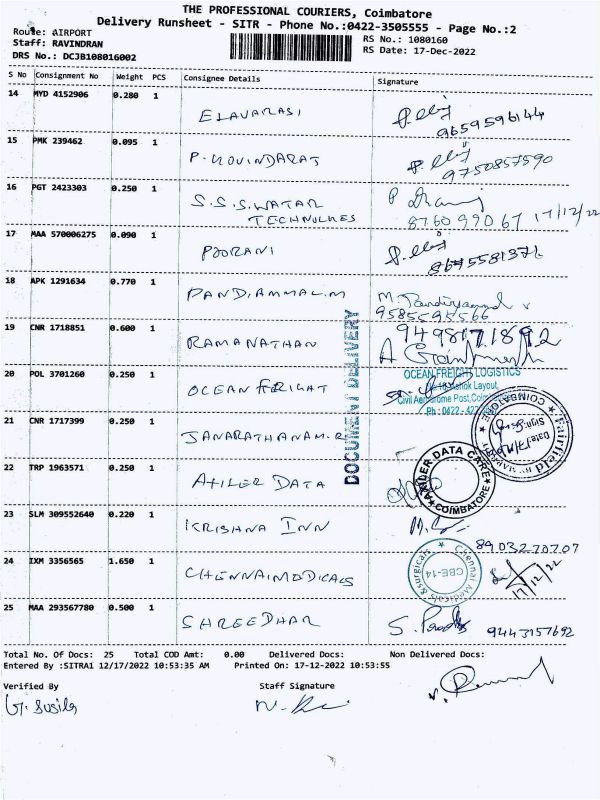 THE PROFESSIONAL COURIERS, Coimbatore
Delivery Runsheet - SITR - Phone No.:0422-3505555 - Page No.:2
Route: AIRPORT
Staff: RAVINDRAN
DRS No.: DCJB108016002
RS No.: 1080160
RS Date: 17-Dec-2022
S No Consignment No Weight PCS Consignee Details Signature
14 MYD 4152906 0.280 1 ELAVARASI
9659596144
15 PMK 239462 0.095 1 P. KOVINDARAJ
9750857590
16 PGT 2423303 0.250 1 S.S.S.WATAR
TECHNULKES
8760 990 67 17/12/22
17 MAA 570006275 0.090 1 POORANI
18 APK 1291634 0.770 1 PANDIAMMAL.M
9585595566
19 CNR 1718851 0.600 1 RAMANATHAN
9498171892
20 POL 3701260 0.250 1 OCEAN FRIGHT
OCEAN FREIGHT LOGISTICS
Ashok Layout,
Civil Aerodrome Post, Coimbatore
Ph : 0422 -
DOCUMENT DELIVERY
21 CNR 1717399 0.250 1 JANARATHANAM.R
Fairfield BY MARRIOTT
COIMBATORE
22 TRP 1963571 0.250 1 ATILER DATA
DATA CARE
COIMBATORE
23 SLM 309552640 0.220 1 KRISHNA INN
89032 70707
24 IXM 3356565 1.650 1 CHENNAIMEDICALS
Chennai Medicals & surgicals
CBE-14
17/12/22
25 MAA 293567780 0.500 1 SHREEDHAR
9443157692
Total No. Of Docs: 25 Total COD Amt: 0.00 Delivered Docs: Non Delivered Docs:
Entered By :SITRA1 12/17/2022 10:53:35 AM Printed On: 17-12-2022 10:53:55
Verified By Staff Signature